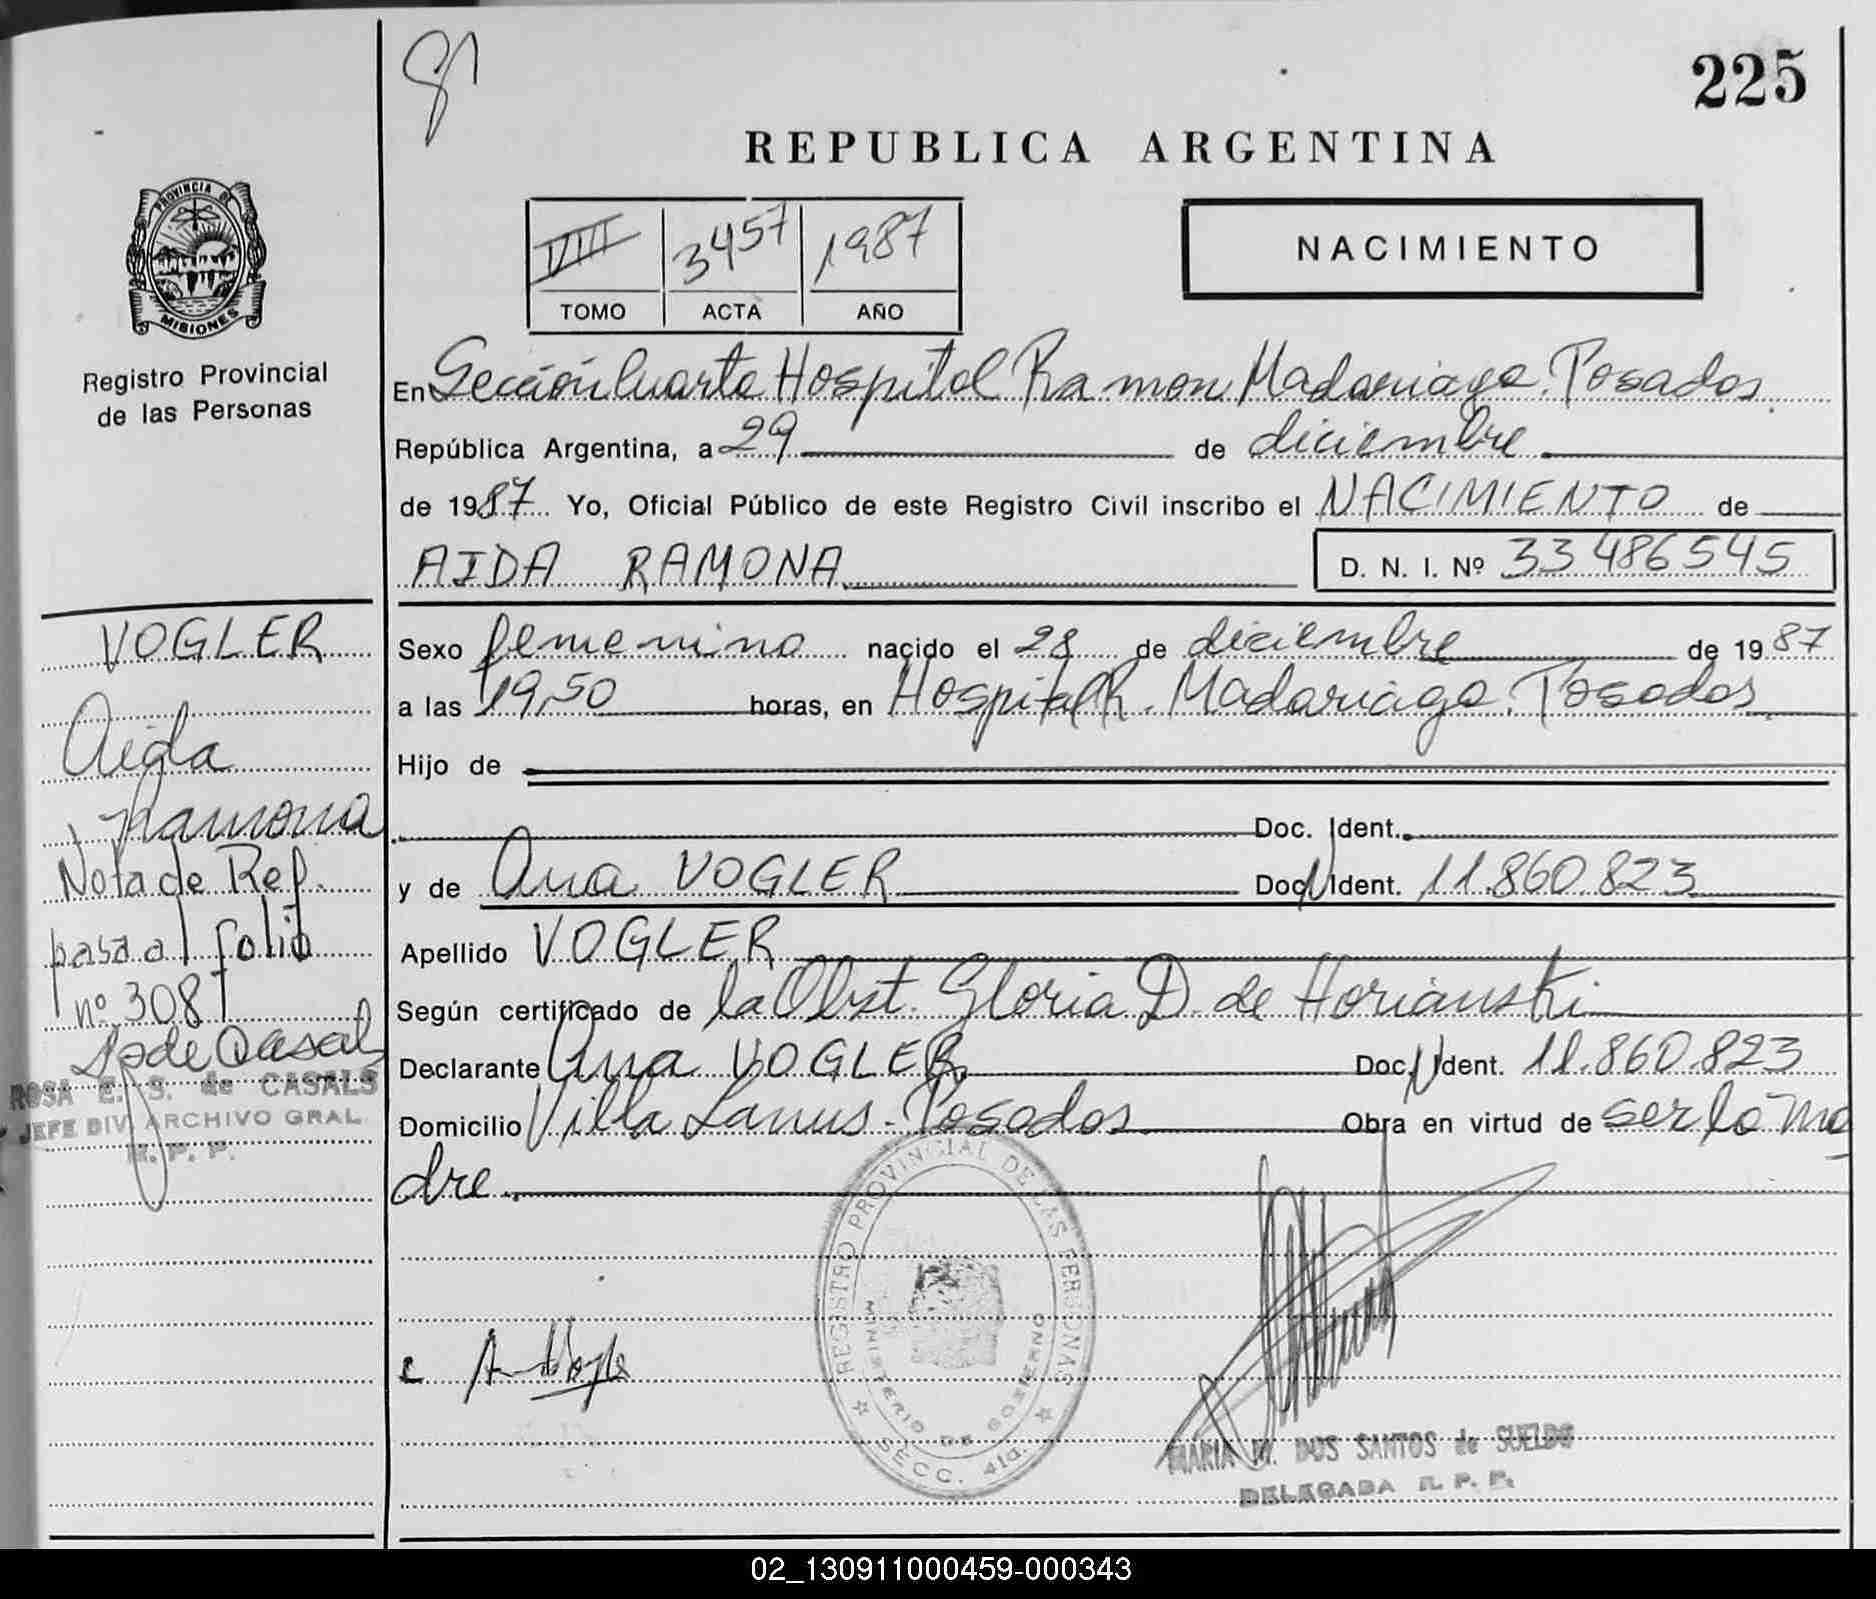 225
REPUBLICA ARGENTINA
PROVINCIA DE
MISIONES
Registro Provincial
de las Personas
VIII 3457 1987
TOMO ACTA AÑO
NACIMIENTO
En Sección Cuarta Hospital Ramon Madariaga. Posadas
República Argentina, a 29 de diciembre
de 1987 Yo, Oficial Público de este Registro Civil inscribo el NACIMIENTO de
AIDA RAMONA D. N. I. Nº 33486545
Sexo femenino nacido el 28 de diciembre de 1987
a las 19,50 horas, en Hospital R. Madariaga. Posadas
Hijo de
Doc. Ident.
y de Ana VOGLER Doc. Ident. 11.860.823
Apellido VOGLER
Según certificado de la Obst. Gloria D. de Horianski
Declarante Ana VOGLER Doc. Ident. 11.860.823
Domicilio Villa Lanus - Posadas Obra en virtud de ser la ma
dre
VOGLER
Aida
Ramona
Nota de Ref.
pasa al folio
nº 308
ROSA E. S. de CASALS
JEFE DIV. ARCHIVO GRAL.
R. P. P.
REGISTRO PROVINCIAL DE LAS PERSONAS
MINISTERIO DE GOBIERNO
SECC. 4ta.
MARIA M. DOS SANTOS de SUELDO
DELEGADA R. P. P.
02_130911000459-000343